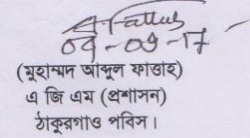 09-09-17
(মুহাম্মদ আব্দুল ফাত্তাহ)
এ জি এম (প্রশাসন)
ঠাকুরগাও পবিস।